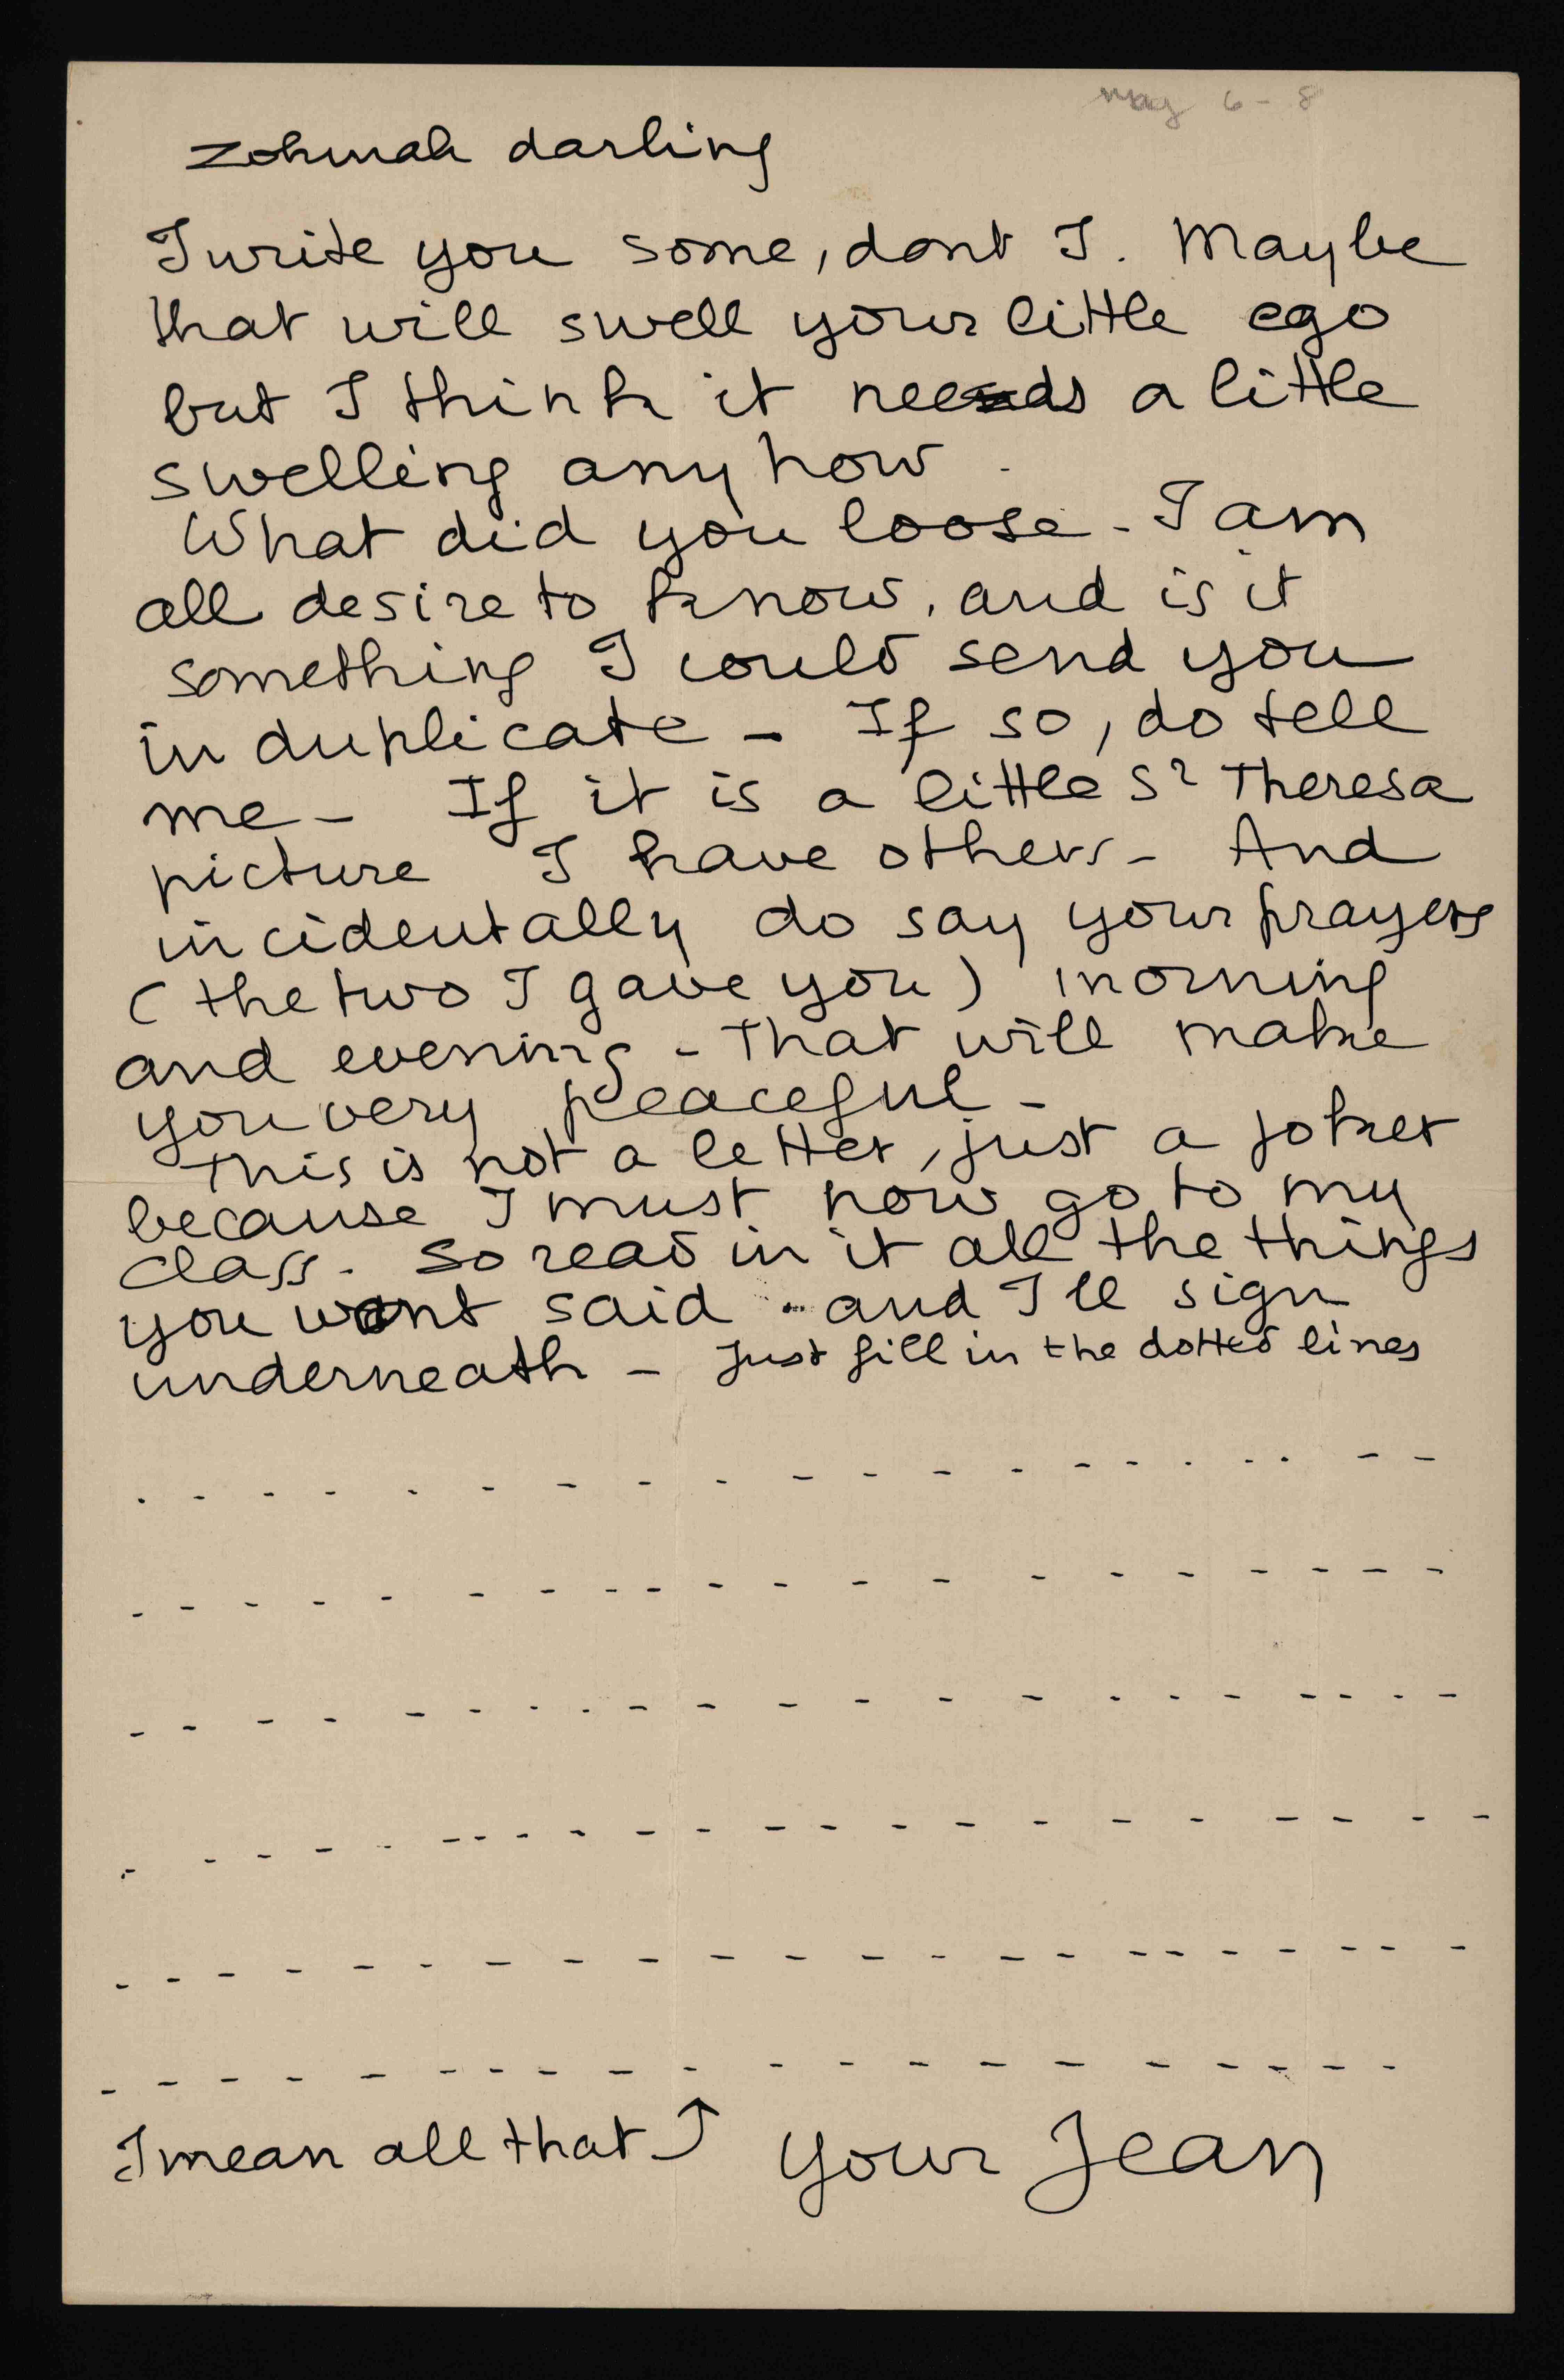 May 6 - 8
Zohmah darling
I write you some, dont I. Maybe
that will swell your little ego
but I think it needs a little
swelling anyhow.
What did you loose - I am
all desire to know, and is it
something I could send you
in duplicate - If so, do tell
me - If it is a little St Theresa
picture I have others - And
incidentally do say your prayers
(the two I gave you) morning
and evening - That will make
you very peaceful -
This is not a letter, just a joker
because I must now go to my
class. So read in it all the things
you want said - and I'll sign
underneath - Just fill in the dotted lines
. - - - - - - - - - - - - - - . - . . - -
- - - - - - - - - - - - - - - - - - - -
- - - - - - . . - - - - - - . - - - - . -
- - - - - - - - - - - - - - - - - - - - -
- - - - - - - - - - - - - - - - - - - - -
- - - - - - - - - - - - - - - - - - - -
I mean all that ↑ your Jean